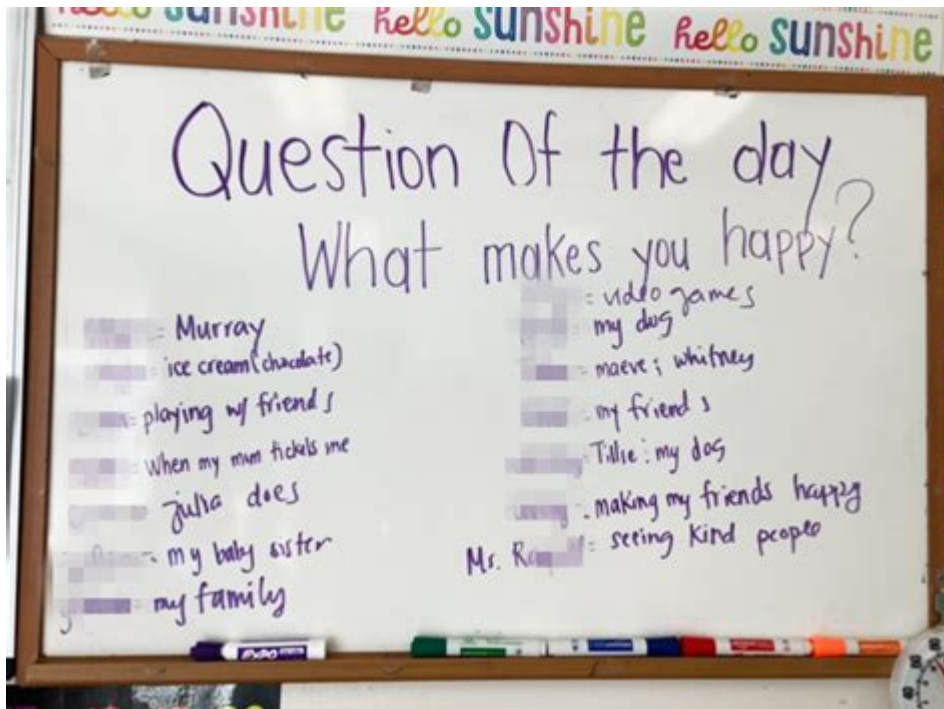 hello sunshine hello sunshine hello sunshine
Question Of the day
What makes you happy?
= Murray
= ice cream (chocolate)
= playing w/ friends
= When my mum tickels me
julia does
= my baby sister
= my family
= video games
my dog
= maeve ; whitney
= my friends
= Tillie : my dog
= making my friends happy
Ms. R = seeing kind people
EXPO